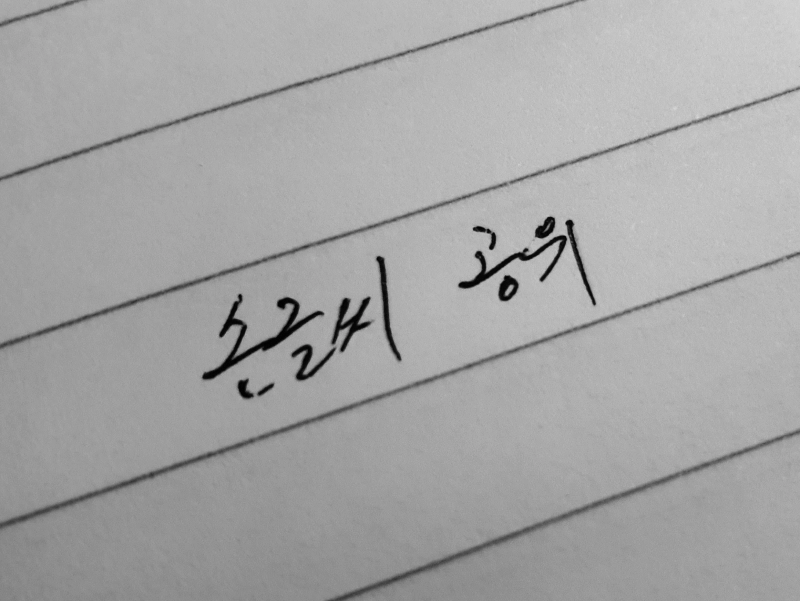 손글씨 공위